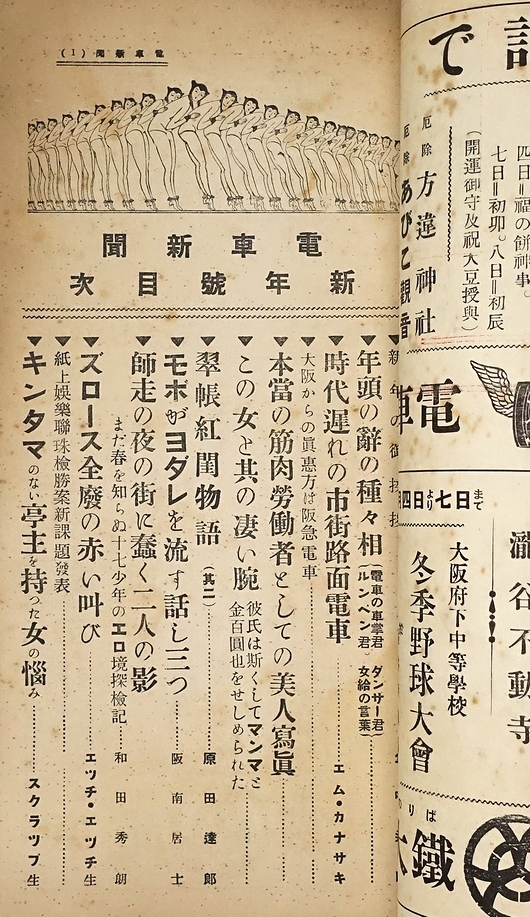 電車新聞 (1)
電車新聞
新年號目次
年頭の辭の種々相(電車の車掌君 ダンサー君 ルンペン君 女給の言葉)
時代遲れの市街路面電車 エム・カナサキ
大阪からの眞惠方は阪急電車
本當の筋肉勞働者としての美人寫眞
この女と其の凄い腕 彼氏は斯くしてマンマと
金百圓也をせしめられた
翠帳紅閨物語(其二) 原田達郎
モボがヨダレを流す話し三つ 阪南居士
師走の夜の街に蠢く二人の影
まだ春を知らぬ十七少年のエロ境探檢記 和田秀朗
ズロース全廢の赤い叫び エッチ・エッチ生
紙上娯樂聯珠檢勝案新課題發表
キンタマのない亭主を持つた女の惱み スクラップ生
で
四日=福の餅神事。
七日=初卯。八日=初辰
(開運御守及祝大豆授與)
厄除 方違神社
厄除 あびこ觀音
電
瀧谷不動寺
四日より七日まで
大阪府下中等學校
冬季野球大會
鐵